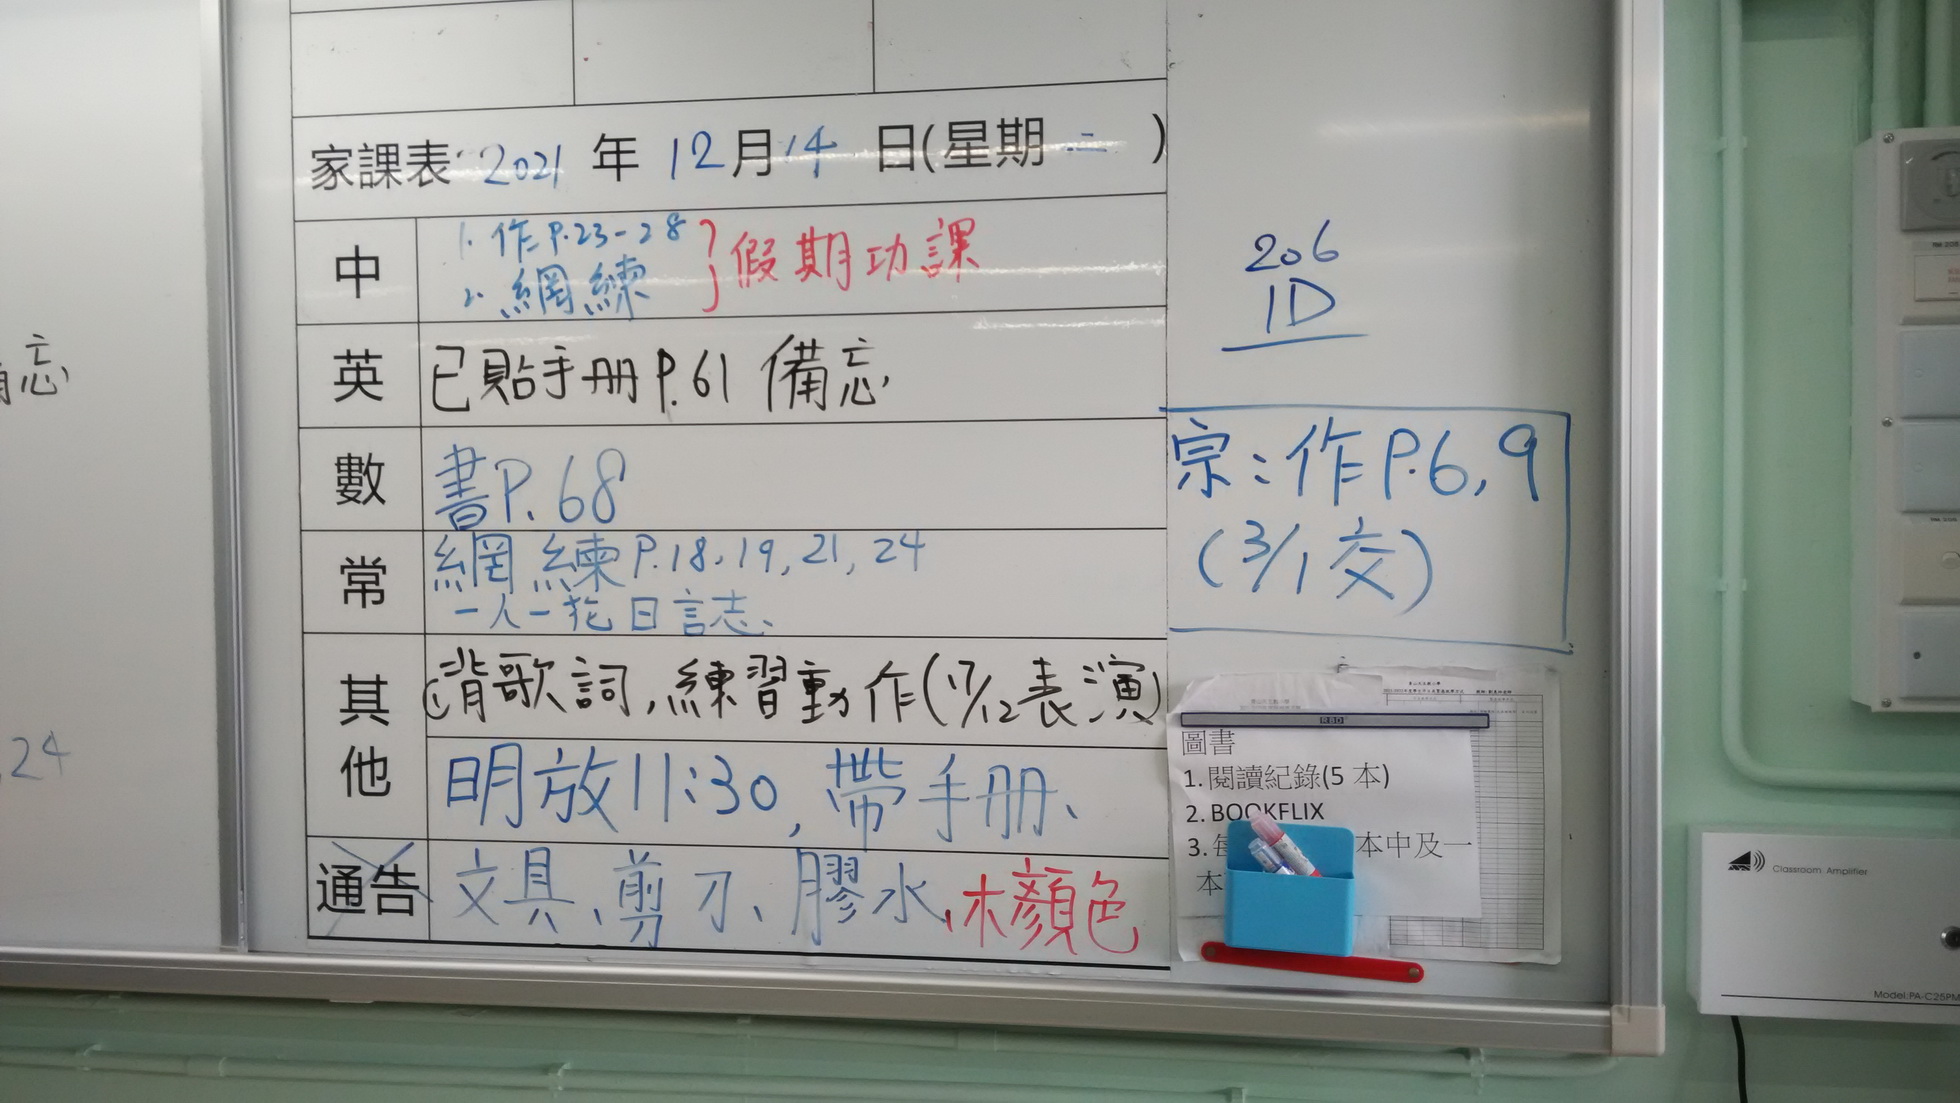 忘
24
家課表: 2021 年 12 月 14 日(星期 二 )
中
1. 作 P.23-28
2. 網練
假期功課
英
已貼手冊 P.61 備忘
數
書P.68
常
網練 P.18, 19, 21, 24
一人一花日誌
其他
背歌詞,練習動作(17/12表演)
明放11:30,帶手冊、
通告
文具、剪刀、膠水、木顏色
206
1D
宗:作P.6,9
(3/1交)
RBD
圖書
1. 閱讀紀錄(5 本)
2. BOOKFLIX
3. 每 本中及一
本
Classroom Amplifier
Model:PA-C25PM